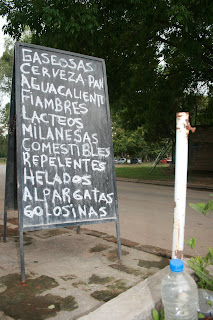 GASEOSAS
CERVEZA PAN
AGUACALIENTE
FIAMBRES
LACTEOS
MILANESAS
COMESTIBLES
REPELENTES
HELADOS
ALPARGATAS
GOLOSINAS